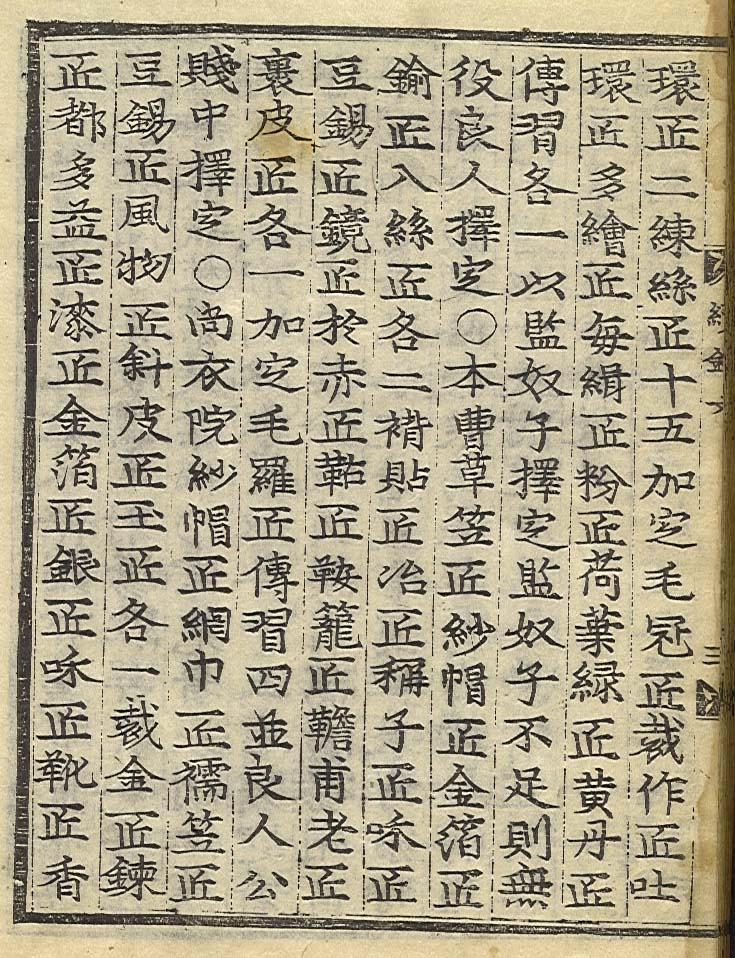 環匠二練絲匠十五加定毛冠匠裁作匠吐
環匠多繪匠每緝匠粉匠荷葉綠匠黃丹匠
傳習各一以監奴子擇定監奴子不足則無
役良人擇定○本曹草笠匠紗帽匠金箔匠
鍮匠入絲匠各二褙貼匠冶匠稱子匠咊匠
豆錫匠鏡匠於赤匠鞊匠鞍籠匠韂甫老匠
裹皮匠各一加定毛羅匠傳習四並良人公
賤中擇定○尙衣院紗帽匠網巾匠襦笠匠
豆錫匠風物匠斜皮匠玉匠各一裁金匠鍊
匠都多益匠漆匠金箔匠銀匠咊匠靴匠香